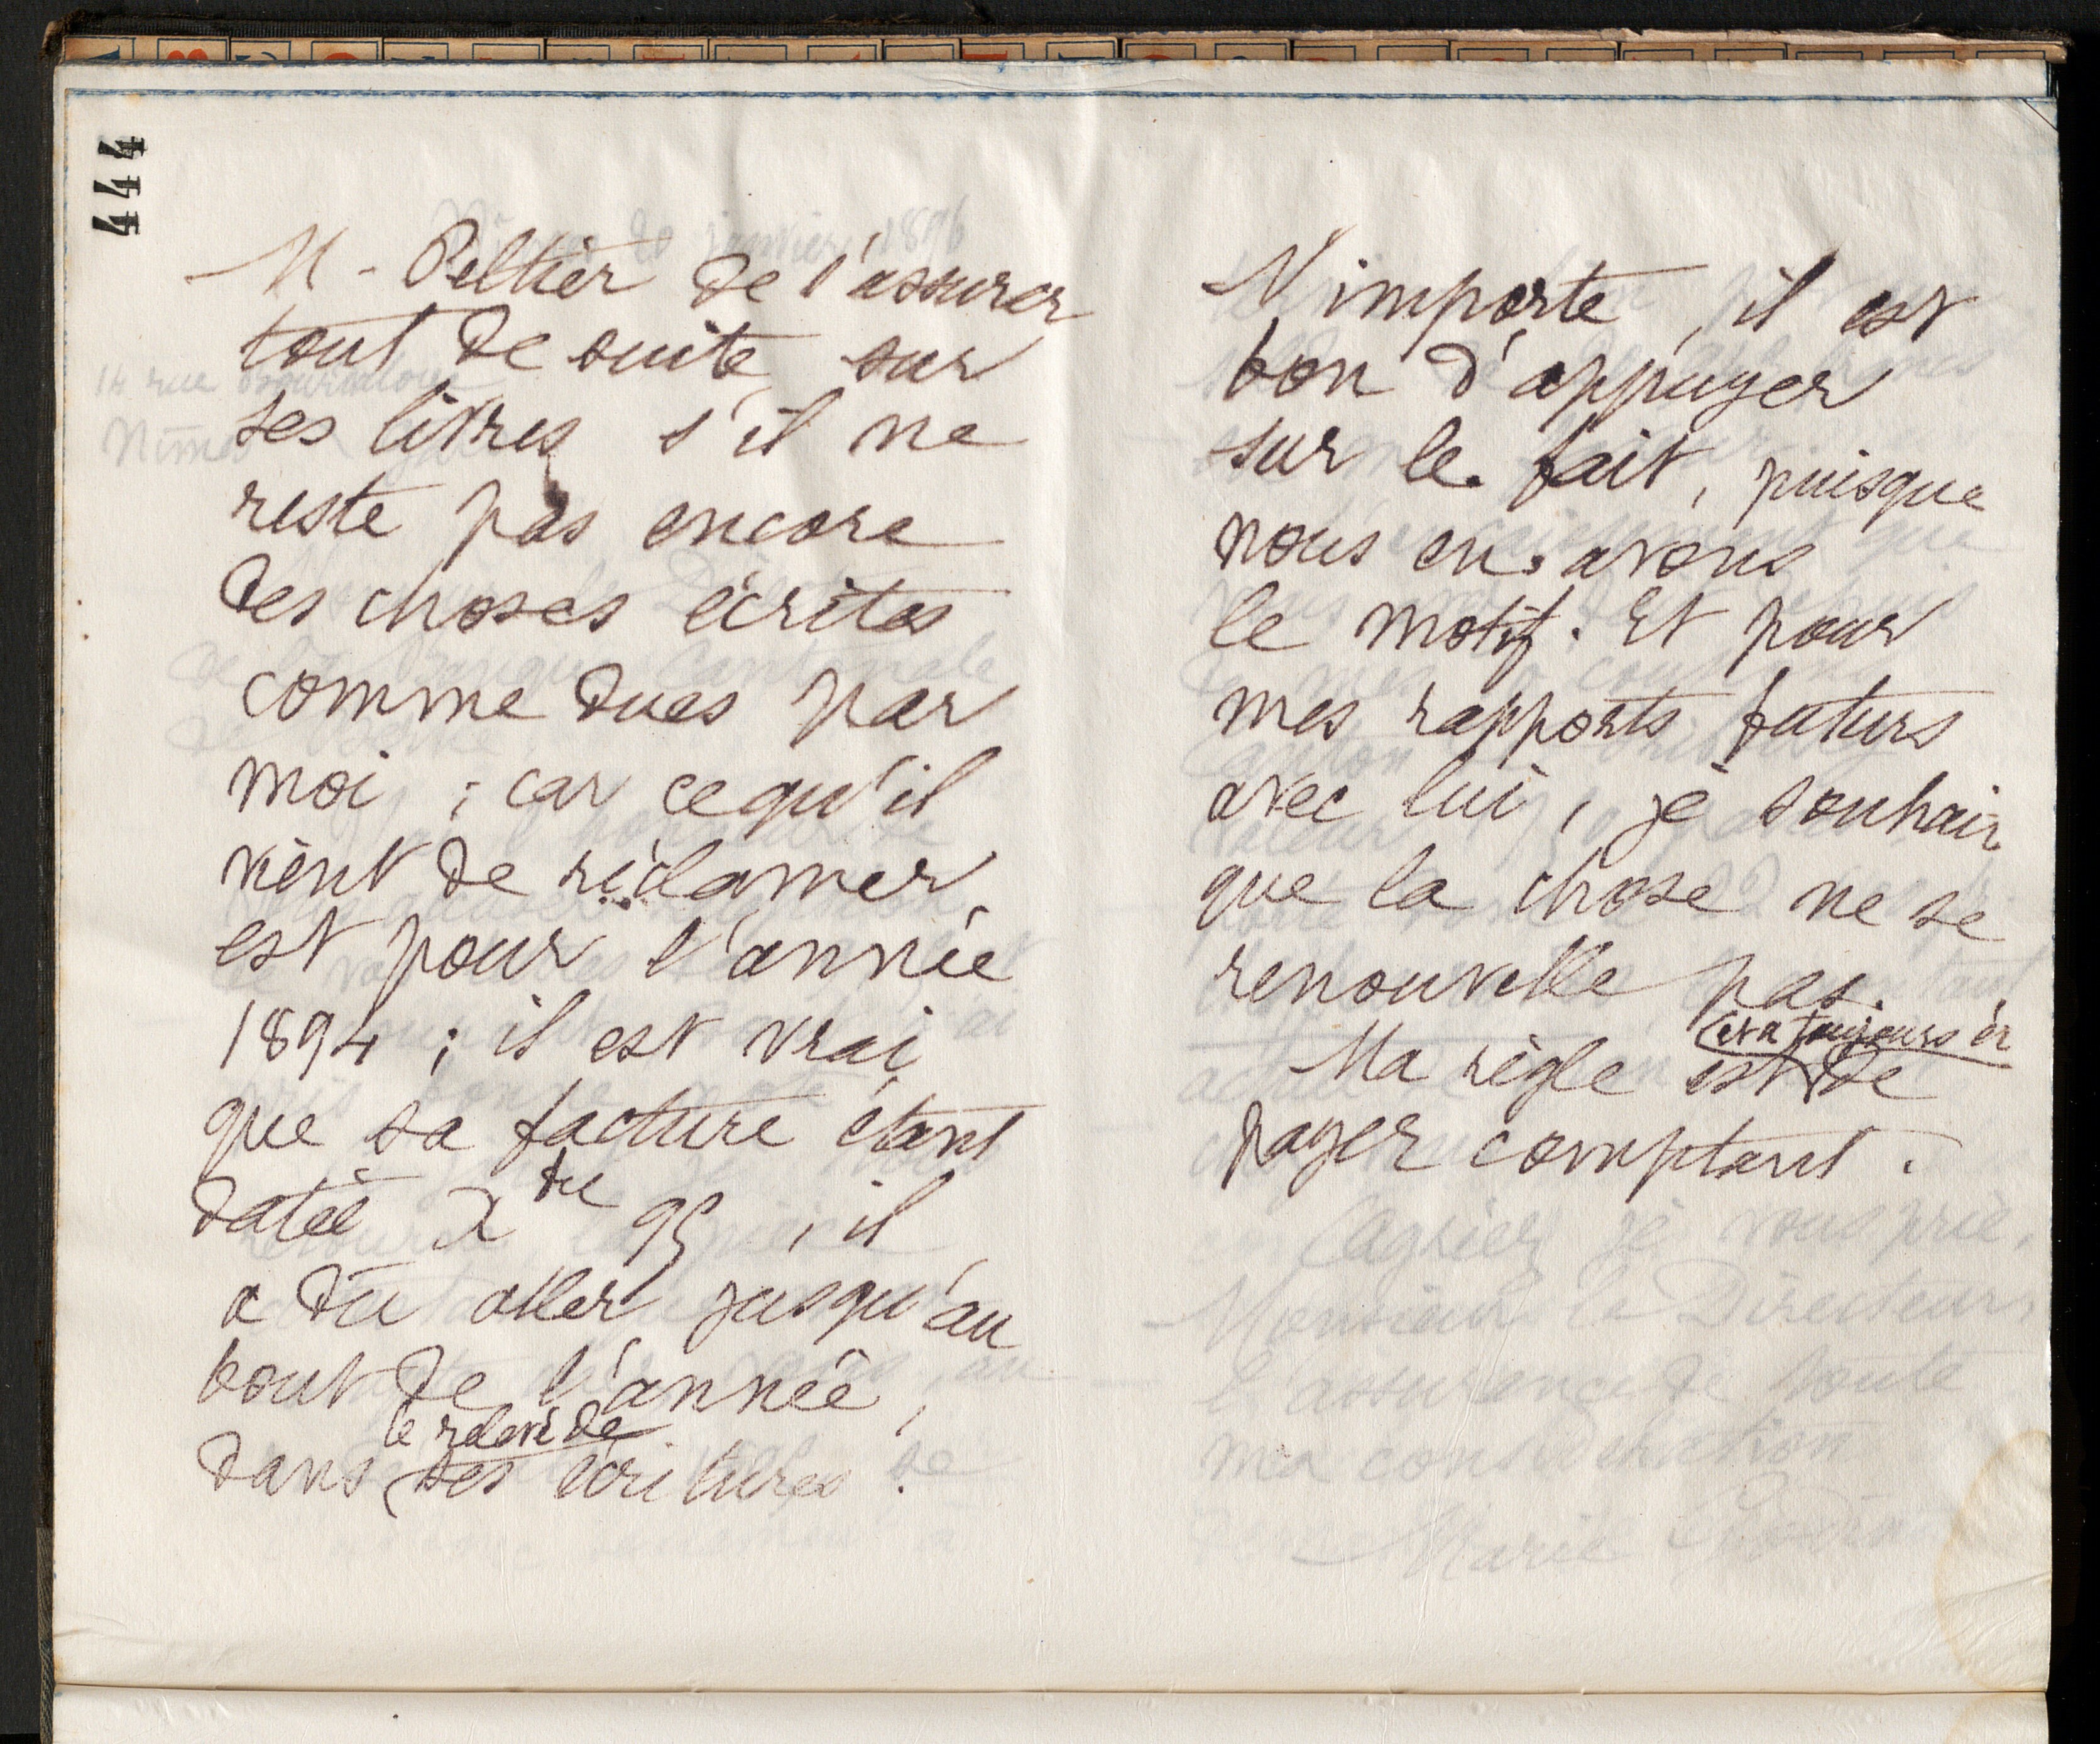 444
M. Peltier de s'assurer
tout de suite, sur
ses livres s'il ne
reste pas encore
des choses écrites
comme dues par
moi ; car ce qu'il
vient de réclamer
est pour l'année
1894 ; il est vrai
que sa facture étant
datée Xbre 95, il
a dû aller jusqu'au
bout de l'année,
le relevé de
dans ses écritures.
N'importe, il est
bon d'appuyer
sur le fait, puisque
nous en avons
le motif. Et pour
mes rapports futurs
avec lui, je souhaite
que la chose ne se
renouvelle pas.
et a toujours été
Ma règle est de
payer comptant.
Agréez je vous prie,
Monsieur le Directeur,
l'assurance de toute
ma considération
Marie Godin